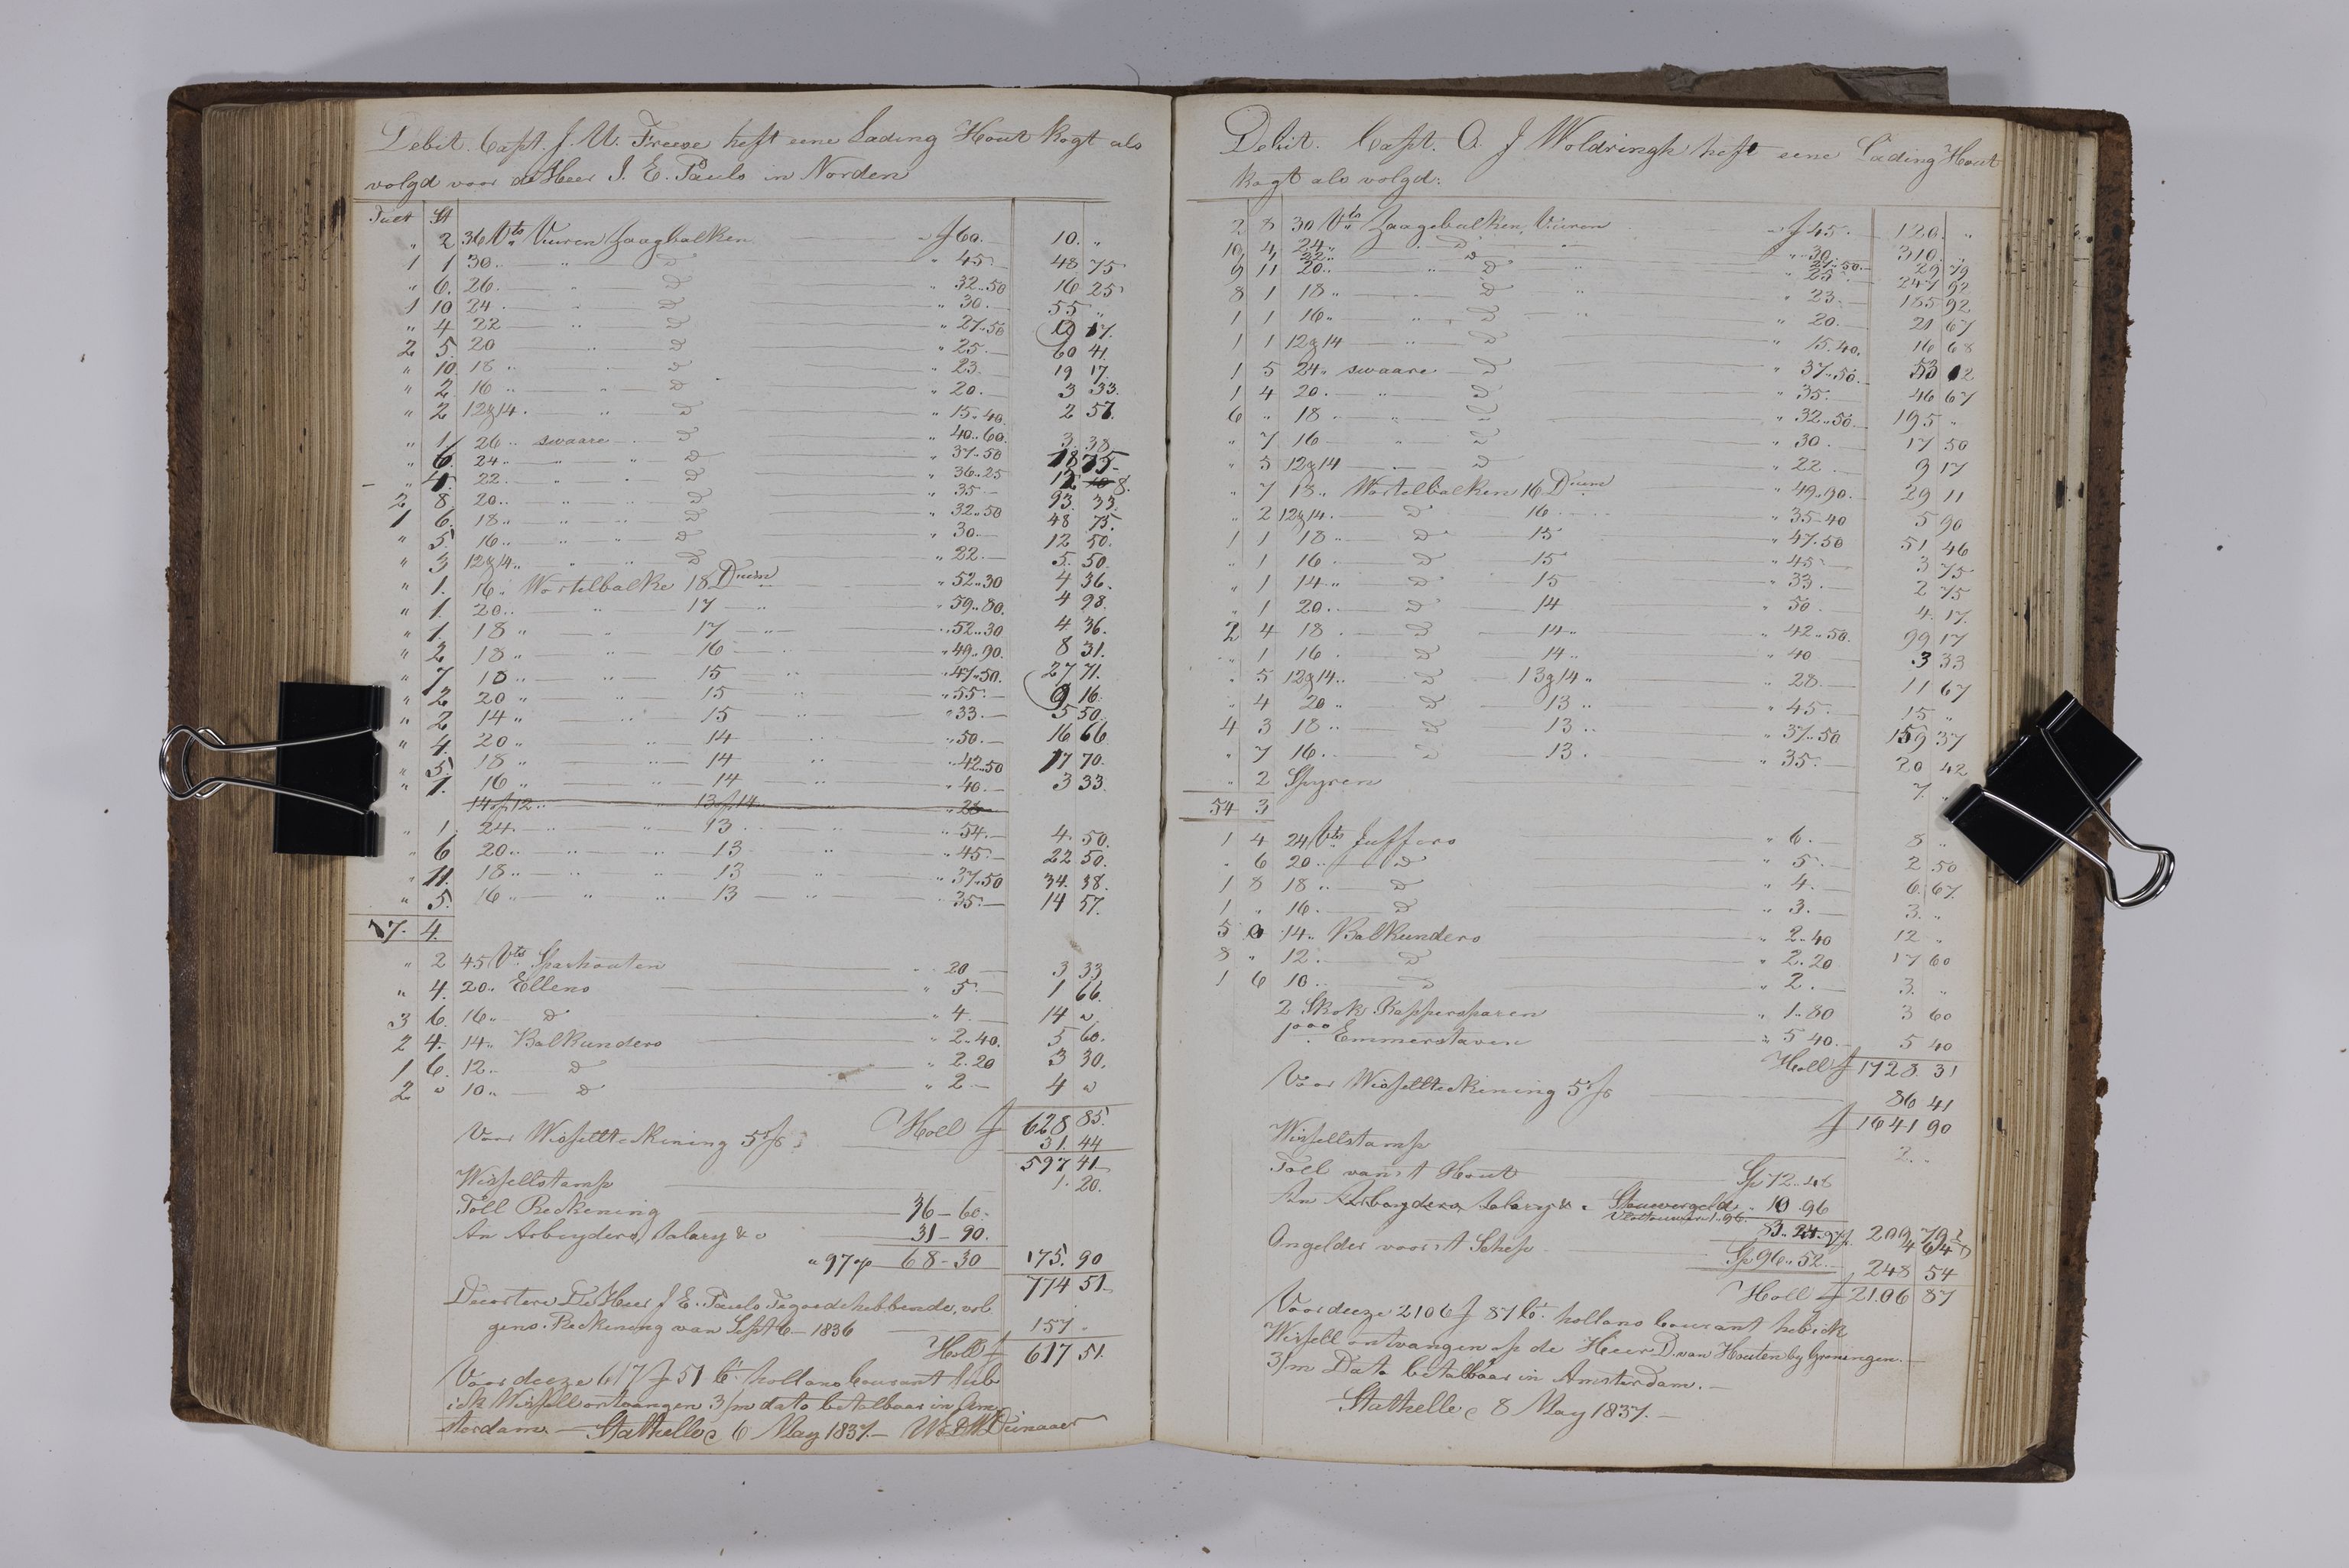 Debit. Capt. J. U. Freese heft eene Lading Hout kogt als
volgd voor de Heer J. E. Pauls in Norden
Tult St
" 2 36 Vts Vuuren Zaagbalken f 60. 10. "
1 1 30.. " Do " 45.— 48 75
" 6. 26. " Do " 32..50 16 25
1 10 24 " Do " 30.— 55 "
" 4 22 " Do " 27..50 9 17.
2 5. 20 " Do " 25.— 60 41.
" 10. 18 " Do " 23. 19 17.
" 2. 16 " Do " 20.— 3 33.
" 2 12 á 14. " Do " 15..40. 2 57.
" 1. 26.. swaare Do " 40..60. 3. 38
" 6. 24.. " " Do " 37..50 18 75
" 4. 22.. " " Do " 36..25 12 8.
2 8 20.. " " Do " 35.— 93. 33.
1 6. 18.. " " Do " 32..50 48 75.
" 5. 16.. " " Do " 30.— 12 50.
" 3 12 á 14.. " " Do " 22.— 5. 50.
" 1. 16.. Wortelbalke 18 Duim " 52..30 4 36.
" 1 20.. " 17 " " 59..80. 4 98.
" 1. 18 " " 17 " " 52..30 4 36.
" 2 18 " " 16 " " 49..90. 8 31.
" 7 18 " " 15 " " 47..50. 27 71.
" 2 20 " " 15 " " 55.— 9 16.
" 2 14 " " 15 " " 33.— 5 50.
" 4. 20 " " 14 " " 50.— 16 66.
" 5. 18 " " 14 " " 42..50 17 70.
" 1. 16 " " 14 " " 40.— 3 33.
14 á 12.. " 13 á 14 " 28
" 1. 24. " 13 " " 54.— 4. 50.
" 6 20.. " " 13 " " 45.— 22 50.
" 11. 18.. " " 13 " " 37..50 34. 38.
" 5. 16 " " " 13 " " 35.— 14 57.
17. 4.
" 2 45 Vts Sparhouten " 20 — 3 33
" 4. 20.. Ellens " 5.— 1 66.
3 6. 16 " Do " 4.— 14 "
2 4. 14.. Balkunders " 2..40. 5 60.
1 6. 12.. Do " 2..20 3 30.
2 " 10.. Do " 2.— 4 "
Holl f 628 85.
Voor Wissellteckining 5 pCt 31. 44
597 41
Wissellstamp 1. 20.
Toll Reckening 36 – 60.
An Arbeyders, Salary &c 31 – 90.
" 97 68 – 30 175. 90
774 51.
Decortere De Heer J. E. Pauls Tegoedhebbende, vol
gens. Reckening van Sept 6 – 1836 157 –
Holl f 617 51.
Voor deeze 617 f 51 Ct hollans Courant heb
ick Wissell ontvangen 3/m dato betalbaar in Am
sterdam. — Stathelle 6 May 1837. —
Debit. Capt. O. J Woldringh heft eene Lading Hout
kogt als volgd:
2 8 30 Vts Zaagebalken, Vüren f 45. 120. "
10 4 24.. Do " 30. 310. "
" 1 22.. Do " 27..50. 29 79
9 11 20.. " Do " 25 247 92
8 1 18 " Do " 23. 185 92
1 1 16 " " Do " 20.— 21 67
1 1 12 á 14 " Do " 15.40. 16 68
1 5 24.. swaare Do " 37..50. 53 12
1 4 20. " Do " 35. 46 67
6 " 18 " Do " 32..50. 195 "
" 7 16 " Do " 30. 17 50
" 5 12 á 14 Do " 22 9 17
" 7 18.. Wortelbalken 16 Duim " 49..90. 29 11
" 2 12 á 14. Do 16 " 35–40 5 90
1 1 18 " Do 15 " 47..50 51 46
" 1 16 " Do 15 " 45 3 75
" 1 14.. Do 15 " 33. 2 75
" 1 20. Do 14 " 50. 4. 17.
2 4 18. Do 14.. " 42..50. 99 17
" 1 16 Do 14.. " 40 3 33
" 5 12 á 14.. Do 13 á 14 " " 28.— 11 67
" 4 20 " Do 13 .. " 45. 15 "
4 3 18 .. Do 13 .. " 37..50 159 37
" 7 16. Do 13. " 35. 20 42
" 2 Spyren 7. "
54 3
1 4 24 Vts Juffers " 6. 8 "
" 6 20.. Do " 5. 2 50
1 8 18 .. Do " 4. 6. 67.
1 " 16. Do " 3. 3. "
5 0 14.. Balkunders " 2..40 12 "
8 " 12. Do " 2.20 17 60
1 6 10. Do " 2. 3. "
2 Skok Bappersparen " 1..80 3 60
1000 Emmerstaven " 5 40.— 5 40
Holl f 1728. 31
Voor Wissellteckining 5 pCt 86 41
f 1641 90
Wissellstamp 2. "
Toll van 't Hout Sp 72..48
An Arbeyders, Salary & Stouwergeld. 10 96
83.. 24 97 209 79
4 64
Ongelder voor 't Schep Sp 96..52. 248 54
Holl f 2106 87
Voor deeze 2106 f 87 Ct. hollans Courant heb ick
Wissell ontvangen op de Heer D. van Houten by Groningen.—
3/m Dato betalbaar in Amsterdam. —
Stathelle 8 May 1837. —